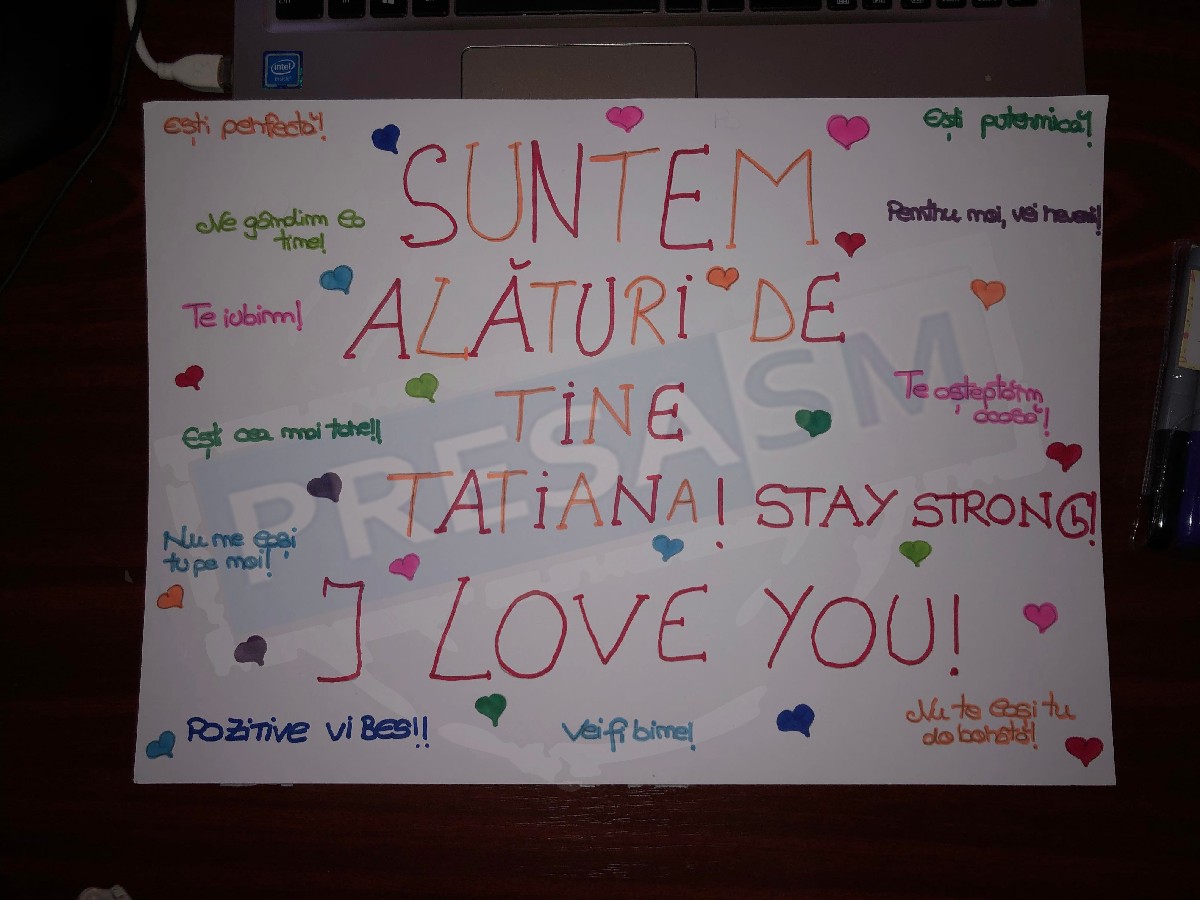 intel
Ești perfectă!
Ești puternică!
SUNTEM
Ne gândim la
tine!
Pentru noi, vei reveni!
ALĂTURI DE
Te iubim!
TINE
Te așteptăm
acasă!
Ești cea mai tare!!
TATIANA! STAY STRONG!
Nu ne lași
tu pe noi!
I LOVE YOU!
POZITIVE VIBES!!
Vei fi bine!
Nu te lași tu
doborâtă!
PRESASM